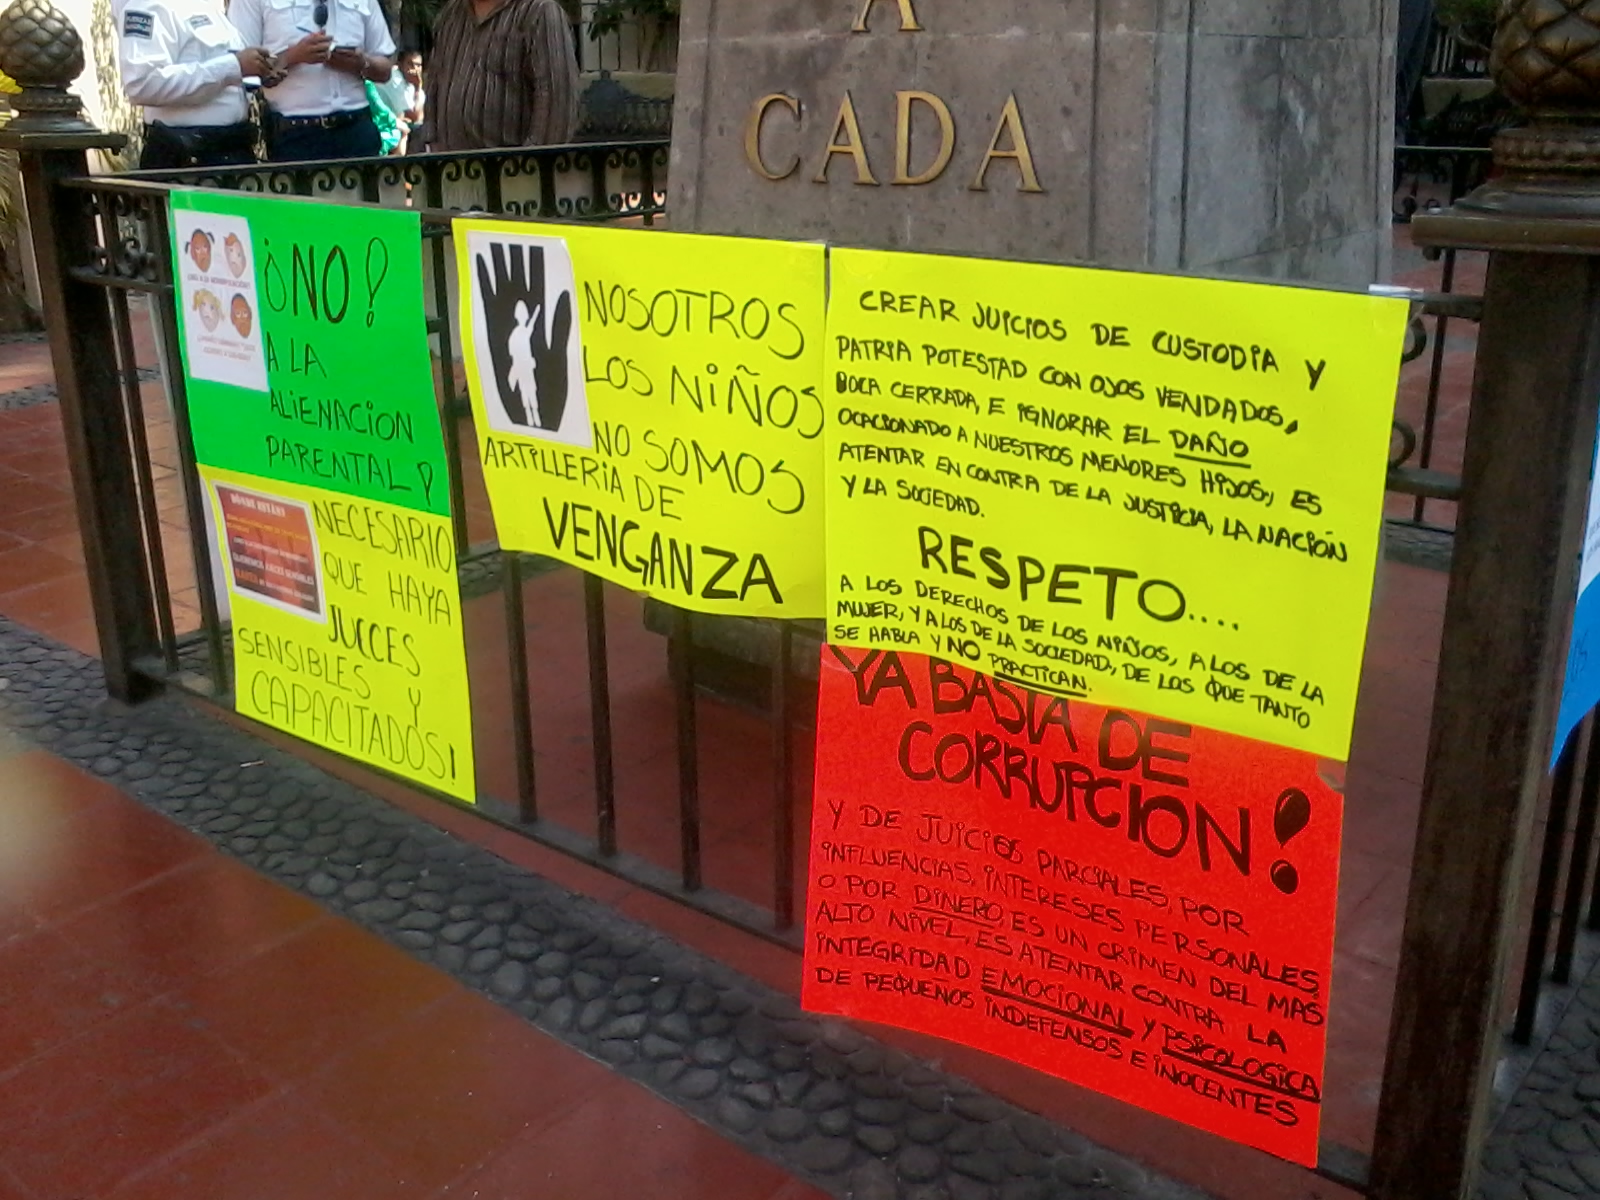 A
CADA
¡NO!
A LA
ALiENACiON
PARENTAL!
NECESARIO
QUE HAYA
JUECES
SENSIBLES Y
CAPACITADOS!
NOSOTROS
LOS NiÑOS
NO SOMOS
ARTiLLERiA DE
VENGANZA
CREAR JUICIOS DE CUSTODIA Y
PATRIA POTESTAD CON OJOS VENDADOS,
BOCA CERRADA, E IGNORAR EL DAÑO
OCACIONADO A NUESTROS MENORES HIJOS, ES
ATENTAR EN CONTRA DE LA JUSTICIA, LA NACIÓN
Y LA SOCIEDAD.
RESPETO....
A LOS DERECHOS DE LOS NIÑOS, A LOS DE LA
MUJER, Y A LOS DE LA SOCIEDAD, DE LOS QUE TANTO
SE HABLA Y NO PRACTICAN.
YA BASTA DE
CORRUPCION!
Y DE JUICIOS PARCIALES, POR
INFLUENCIAS, INTERESES PERSONALES,
O POR DINERO, ES UN CRIMEN DEL MAS
ALTO NIVEL, ES ATENTAR CONTRA LA
INTEGRIDAD EMOCIONAL Y PSICOLOGICA
DE PEQUEÑOS INDEFENSOS E INOCENTES